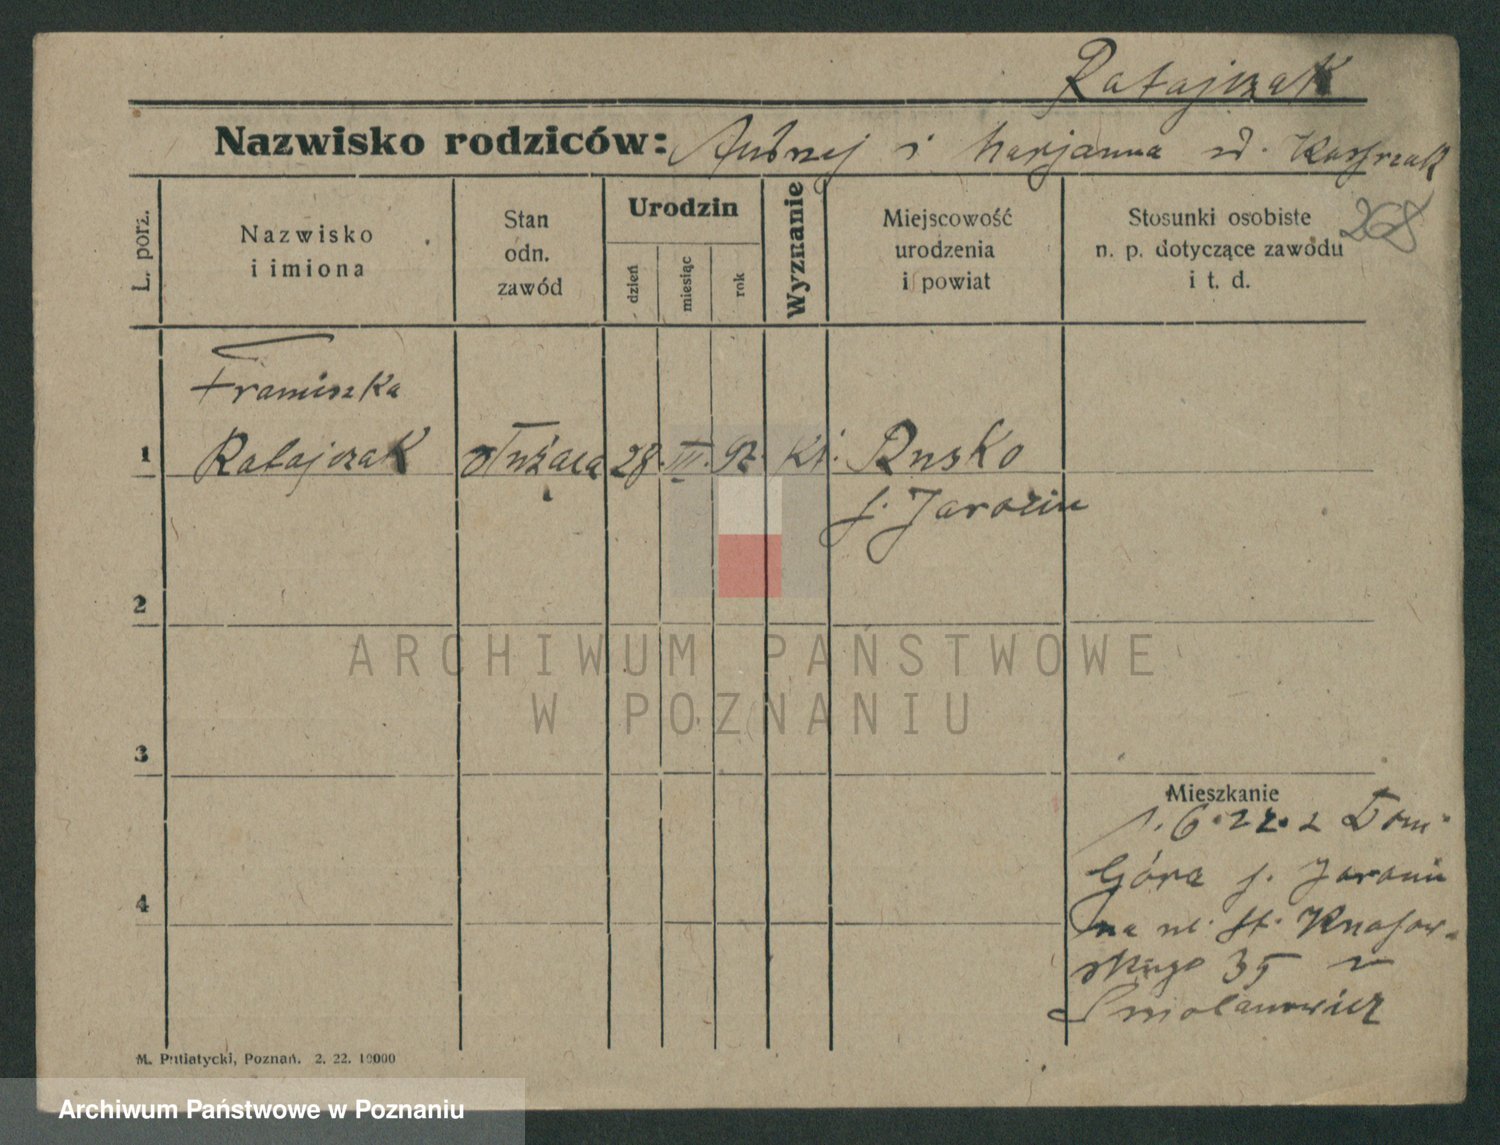 Ratajczak
Nazwisko rodziców: Andrzej i Marjanna zd. Kasprzak
268
L. porz.
Nazwisko
i imiona
Stan
odn.
zawód
Urodzin
dzień
miesiąc
rok
Wyznanie
Miejscowość
urodzenia
i powiat
Stosunki osobiste
n. p. dotyczące zawodu
i t. d.
Franciszka
1 Ratajczak służąca 28. III. 92. kt. Rusko
p. Jarocin
2
3
4
Mieszkanie
1. 6. 22. z Dom.
Góra p. Jarocin
na ul. St. Knapow-
skiego 35 u
M. Putiatycki, Poznań. 2. 22. 10000
ARCHIWUM PAŃSTWOWE
W POZNANIU
Archiwum Państwowe w Poznaniu